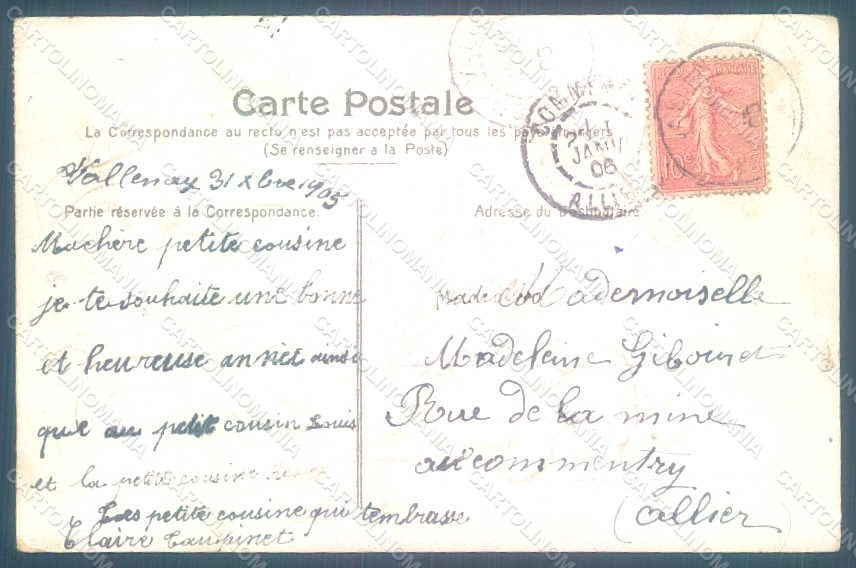 Carte Postale
La Correspondance au recto n'est pas acceptée par tous les pays étrangers
(Se renseigner à la Poste)
Vallenay 31 Xbre 1905
Partie réservée à la Correspondance.
Machère petite cousine
je te souhaite une bonne
et heureuse anniet ainsi
que au petit cousin Louis
et la petite cousine
petite cousine qui tembrasse
Claire
Adresse du Destinataire
Mademoiselle
Madeleine Gibouret
Rue de la mine
commentry
(allier)
COMMENTRY
JANV
06
ALLIER
10c
CARTOLINOMANIA